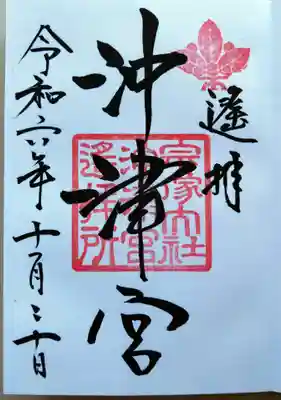 遙拝
沖津宮
令和六年十月二十日
宗像大社
沖津宮
遙拝所